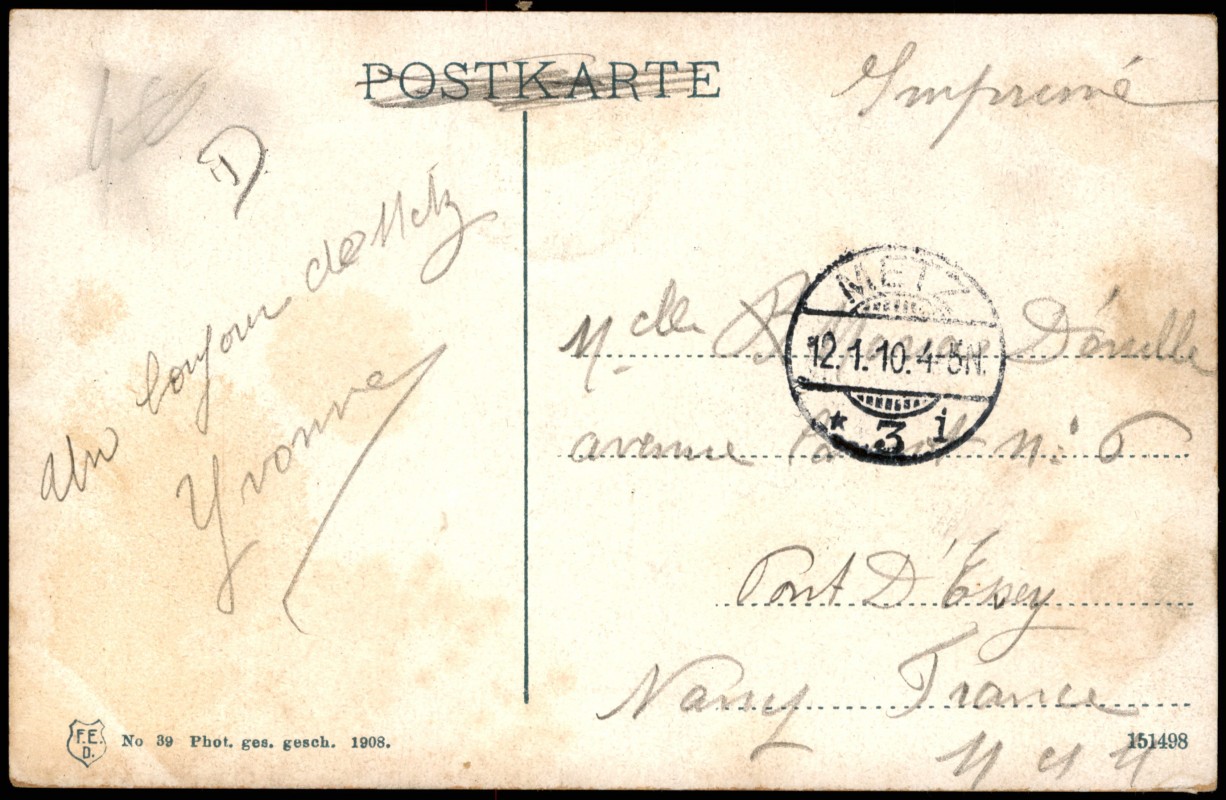 POSTKARTE
Imprimé
D
Un
bonjour de Metz
Yvonne
METZ
12.1.10.4-5N.
* 3 i
Mdelle B
avenue N: 6
Pont D'Essey
Nancy France
M et M
F.E.
D.
No 39 Phot. ges. gesch. 1908.
151498